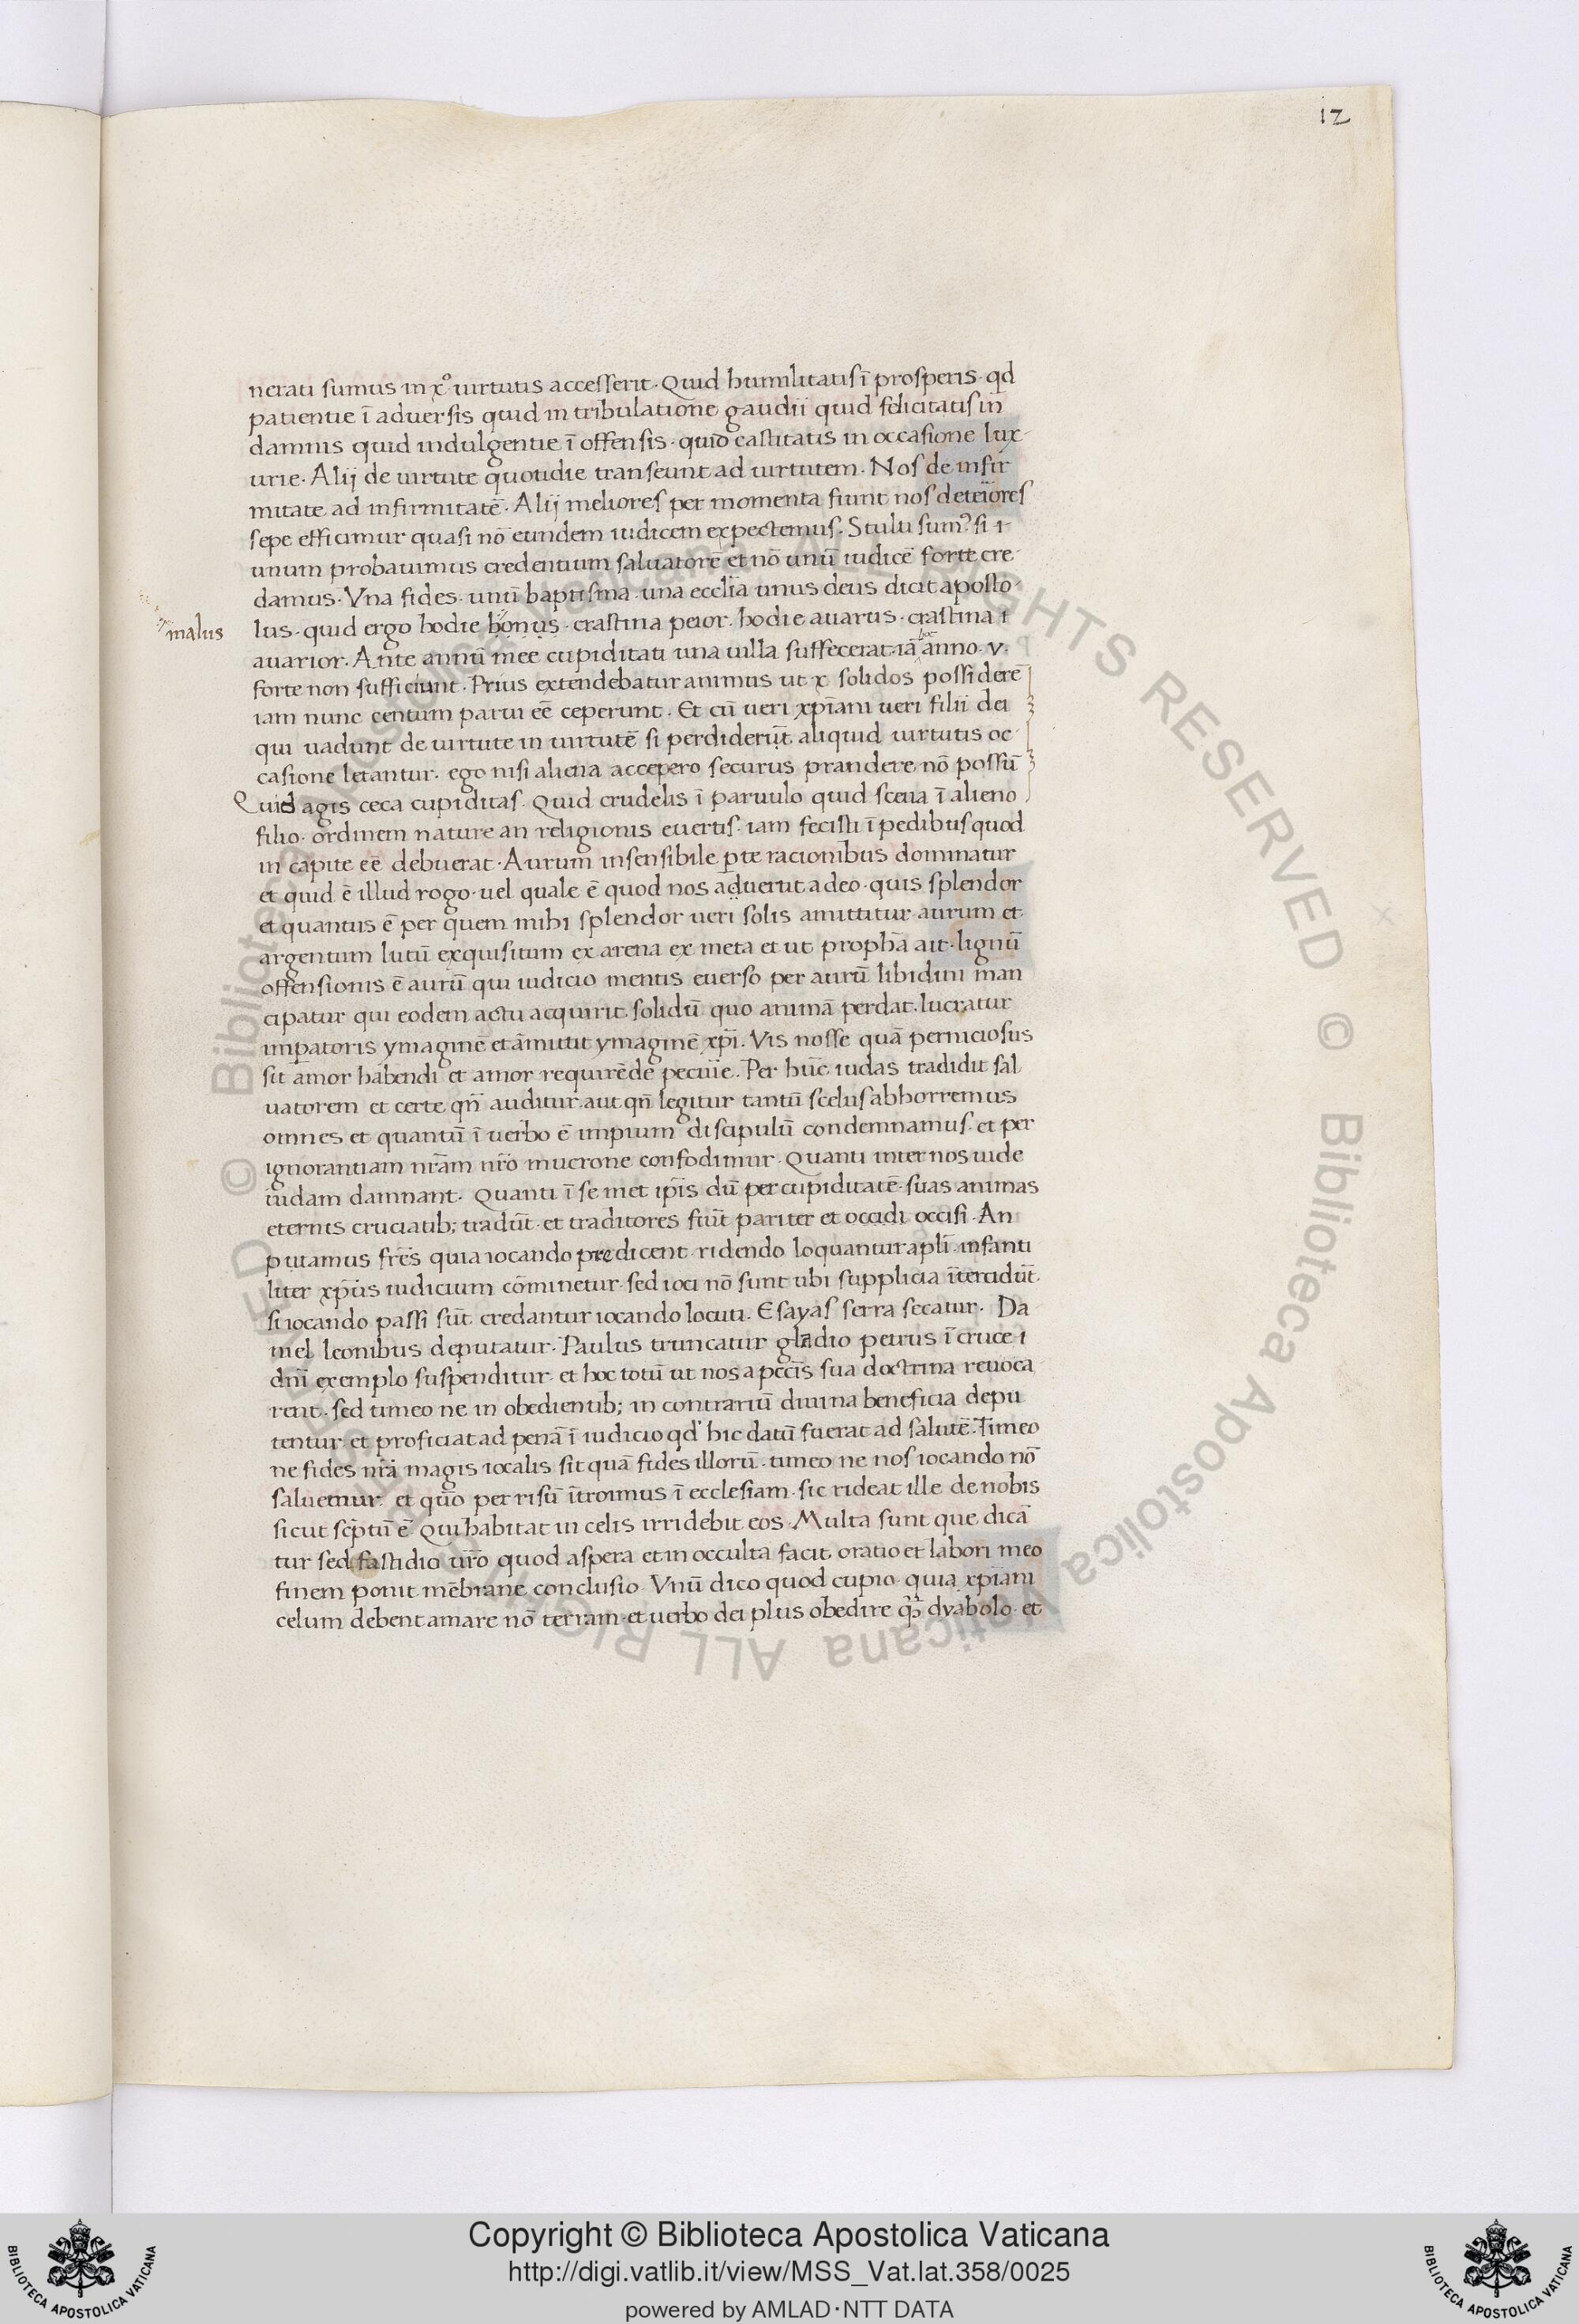 12
nerati sumus in x° uirtutis accesserit. Quid humilitatis ī prosperis. qd
patientie ī aduersis quid in tribulatione gaudii quid felicitatis in
damnis quid indulgentie ī offensis. quid castitatis in occasione lux
urie. Alij de uirtute quotidie transeunt ad uirtutem. Nos de infir
mitate ad infirmitatē. Alij meliores per momenta fiunt nos deteriores
sepe efficimur quasi nō eundem iudicem expectemus. Stulti sumꝰ si
unum probauimus credentium saluatorē et nō unū iudicē forte cre
damus. Vna fides. unū baptisma. una ecclīa unus deus dicit aposto
malus
lus. quid ergo hodie bonus. crastina peior. hodie auarus. crastina
auarior. Ante annū mee cupiditati una uilla suffecerat. iā hoc anno. v.
forte non sufficiunt. Prius extendebatur animus ut x solidos possiderē
iam nunc centum parui eē ceperunt. Et cū ueri xp̄iani ueri filii dei
qui uadunt de uirtute in uirtutē si perdiderūt aliquid uirtutis oc
casione letantur. ego nisi aliena accepero securus prandere nō possū
Quid agis ceca cupiditas. Quid crudelis ī paruulo quid sceua ī alieno
filio. ordinem nature an religionis euertis. iam fecisti ī pedibus quod
in capite eē debuerat. Aurum insensibile p̱te racionibus dominatur
et quid ē illud rogo. uel quale ē quod nos aduertit a deo. quis splendor
et quantus ē per quem mihi splendor ueri solis amittitur. aurum et
argentum lutū exquisitum ex arena ex meta et ut prophā ait. lignū
offensionis ē aurū qui iudicio mentis euerso per aurū libidini man
cipatur qui eodem actu acquirit solidū quo animā perdat. lucratur
imp̱atoris ymaginē et amittit ymaginē xp̄i. Vis nosse quā perniciosus
sit amor habendi et amor requirēde pecunie. Per hūc iudas tradidit sal
uatorem et certe qn̄ auditur. aut qn̄ legitur tantū scelus abhorremus
omnes et quantū ī uerbo ē impium discipulū condemnamus. et per
ignorantiam nr̄am nr̄o mucrone confodimur. Quanti inter nos uide
iudam damnant. Quanti ī se met ip̄is dū per cupiditatē. suas animas
eternis cruciatib; tradūt. et traditores fiūt pariter et occidi occisi. An
putamus fr̄es quia iocando predicent. ridendo loquantur apl̄i. infanti
liter xp̄us iudicium cōminetur. sed ioci nō sunt ubi supplicia ītercidūt.
si iocando passi sūt credantur iocando locuti. Esayas serra secatur. Da
niel leonibus deputatur. Paulus truncatur gladio petrus ī cruce
dn̄i exemplo suspenditur. et hoc totū ut nos a pcc̄is sua doctrina reuoca
rent. sed timeo ne in obedientib; in contrariū diuina beneficia depu
tentur. et proficiat ad penā ī iudicio qd hic datū fuerat ad salutē. Timeo
ne fides nr̄a magis iocalis sit quā fides illorū. timeo ne nos iocando nō
saluemur. et quō per risū ītroimus ī ecclesiam. sic rideat ille de nobis
sicut scp̄tū ē Qui habitat in celis irridebit eos. Multa sunt que dicā
tur sed fastidio ur̄o quod aspera et in occulta facit oratio et labori meo
finem ponit mēbrane conclusio. Vnū dico quod cupio. quia xp̄iani
celum debent amare nō terram. et uerbo dei plus obedire qꝫ dyabolo. et
Copyright © Biblioteca Apostolica Vaticana
http://digi.vatlib.it/view/MSS_Vat.lat.358/0025
powered by AMLAD·NTT DATA
BIBLIOTECA APOSTOLICA VATICANA
BIBLIOTECA APOSTOLICA VATICANA
© Biblioteca Apostolica Vaticana ALL RIGHTS RESERVED © Biblioteca Apostolica Vaticana ALL RIGHTS RESERVED